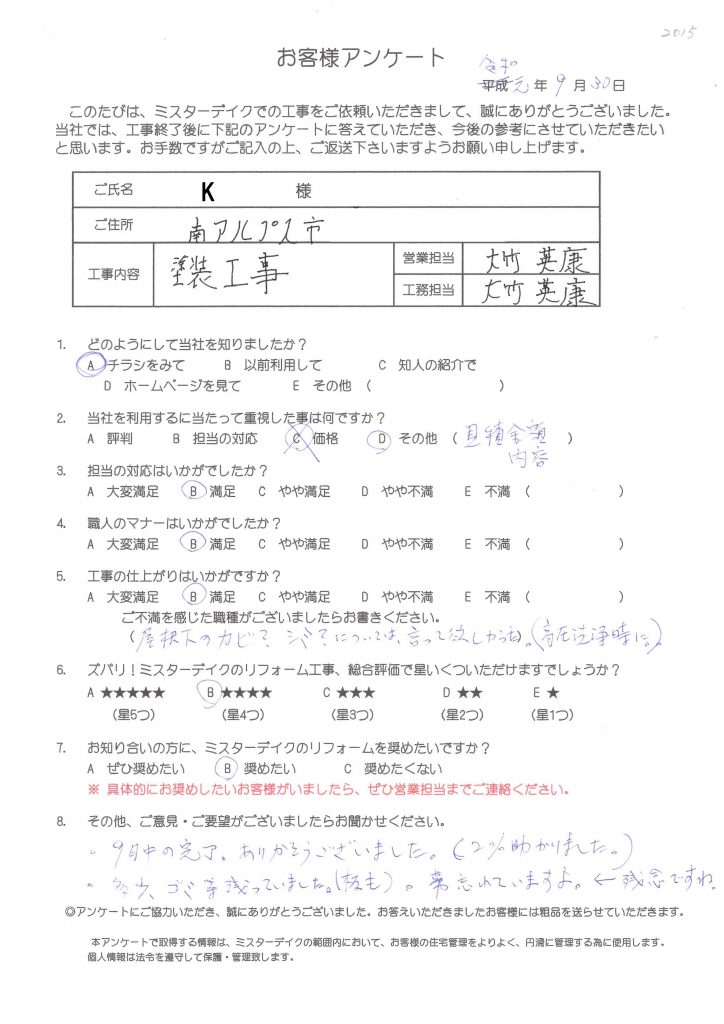 2015
お客様アンケート
令和
平成元年 9月 30日
このたびは、ミスターデイクでの工事をご依頼いただきまして、誠にありがとうございました。
当社では、工事終了後に下記のアンケートに答えていただき、今後の参考にさせていただきたい
と思います。お手数ですがご記入の上、ご返送下さいますようお願い申し上げます。
ご氏名 K 様
ご住所 南アルプス市
工事内容 塗装工事 営業担当 大竹 英康
工務担当 大竹 英康
1. どのようにして当社を知りましたか？
A チラシをみて B 以前利用して C 知人の紹介で
D ホームページを見て E その他 ( )
2. 当社を利用するに当たって重視した事は何ですか？
A 評判 B 担当の対応 C 価格 D その他 ( 見積金額 )
内容
3. 担当の対応はいかがでしたか？
A 大変満足 B 満足 C やや満足 D やや不満 E 不満 ( )
4. 職人のマナーはいかがでしたか？
A 大変満足 B 満足 C やや満足 D やや不満 E 不満 ( )
5. 工事の仕上がりはいかがですか？
A 大変満足 B 満足 C やや満足 D やや不満 E 不満 ( )
ご不満を感じた職種がございましたらお書きください。
(屋根下のカビ？シミ？については、言って欲しかった。(高圧洗浄時に)
6. ズバリ！ミスターデイクのリフォーム工事、総合評価で星いくついただけますでしょうか？
A ★★★★★ B ★★★★ C ★★★ D ★★ E ★
(星5つ) (星4つ) (星3つ) (星2つ) (星1つ)
7. お知り合いの方に、ミスターデイクのリフォームを奨めたいですか？
A ぜひ奨めたい B 奨めたい C 奨めたくない
※ 具体的にお奨めしたいお客様がいましたら、ぜひ営業担当までご連絡ください。
8. その他、ご意見・ご要望がございましたらお聞かせください。
・9月中の完了。ありがとうございました。(2%助かりました。)
・多少、ゴミ等残っていました。(板も)。 忘れていますよ。← 残念ですね。
◎アンケートにご協力いただき、誠にありがとうございました。お答えいただきましたお客様には粗品を送らせていただきます。
本アンケートで取得する情報は、ミスターデイクの範囲内において、お客様の住宅管理をよりよく、円滑に管理する為に使用します。
個人情報は法令を遵守して保護・管理致します。